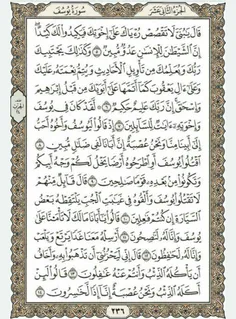 الجزء الثاني عشر
سورة يوسف
قَالَ يَٰبُنَيَّ لَا تَقْصُصْ رُءْيَاكَ عَلَىٰٓ إِخْوَتِكَ فَيَكِيدُوا۟ لَكَ كَيْدًا
إِنَّ ٱلشَّيْطَٰنَ لِلْإِنسَٰنِ عَدُوٌّ مُّبِينٌ ٥ وَكَذَٰلِكَ يَجْتَبِيكَ
رَبُّكَ وَيُعَلِّمُكَ مِن تَأْوِيلِ ٱلْأَحَادِيثِ وَيُتِمُّ نِعْمَتَهُۥ عَلَيْكَ
وَعَلَىٰٓ ءَالِ يَعْقُوبَ كَمَآ أَتَمَّهَا عَلَىٰٓ أَبَوَيْكَ مِن قَبْلُ إِبْرَٰهِيمَ
وَإِسْحَٰقَ إِنَّ رَبَّكَ عَلِيمٌ حَكِيمٌ ٦ لَّقَدْ كَانَ فِى يُوسُفَ
وَإِخْوَتِهِۦٓ ءَايَٰتٌ لِّلسَّآئِلِينَ ٧ إِذْ قَالُوا۟ لَيُوسُفُ وَأَخُوهُ أَحَبُّ
إِلَىٰٓ أَبِينَا مِنَّا وَنَحْنُ عُصْبَةٌ إِنَّ أَبَانَا لَفِى ضَلَٰلٍ مُّبِينٍ ٨
ٱقْتُلُوا۟ يُوسُفَ أَوِ ٱطْرَحُوهُ أَرْضًا يَخْلُ لَكُمْ وَجْهُ أَبِيكُمْ
وَتَكُونُوا۟ مِنۢ بَعْدِهِۦ قَوْمًا صَٰلِحِينَ ٩ قَالَ قَآئِلٌ مِّنْهُمْ
لَا تَقْتُلُوا۟ يُوسُفَ وَأَلْقُوهُ فِى غَيَٰبَتِ ٱلْجُبِّ يَلْتَقِطْهُ بَعْضُ
ٱلسَّيَّارَةِ إِن كُنتُمْ فَٰعِلِينَ ١٠ قَالُوا۟ يَٰٓأَبَانَا مَا لَكَ لَا تَأْمَ۫نَّا عَلَىٰ
يُوسُفَ وَإِنَّا لَهُۥ لَنَٰصِحُونَ ١١ أَرْسِلْهُ مَعَنَا غَدًا يَرْتَعْ وَيَلْعَبْ
وَإِنَّا لَهُۥ لَحَٰفِظُونَ ١٢ قَالَ إِنِّى لَيَحْزُنُنِىٓ أَن تَذْهَبُوا۟ بِهِۦ وَأَخَافُ
أَن يَأْكُلَهُ ٱلذِّئْبُ وَأَنتُمْ عَنْهُ غَٰفِلُونَ ١٣ قَالُوا۟ لَئِنْ
أَكَلَهُ ٱلذِّئْبُ وَنَحْنُ عُصْبَةٌ إِنَّآ إِذًا لَّخَٰسِرُونَ ١٤
٢٣٦